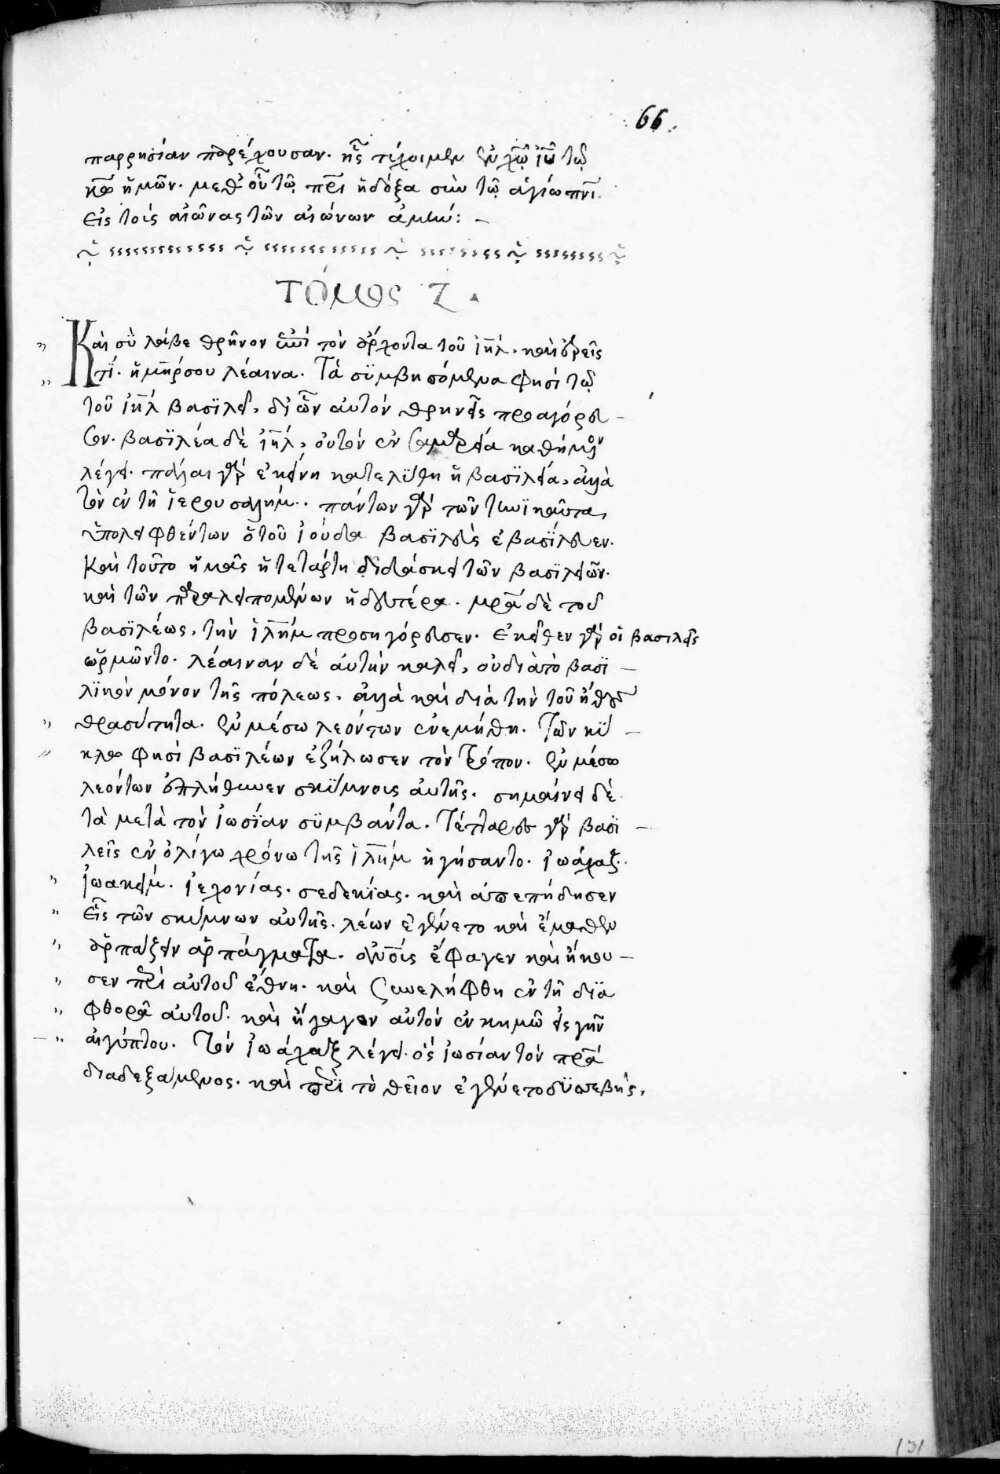 66.
παρρησίαν παρέχουσαν. ἧς τύχοιμεν ἐν χω ιυ τῶ
κω ἡμῶν. μεθ οὗ τῶ πρι ἡ δόξα σὺν τῶ ἁγίω πνι.
εἰς τοὺς αἰῶνας τῶν αἰώνων ἀμήν: –
ΤΌΜΟς Ζ.
Καὶ σὺ λάβε θρῆνον ἐπὶ τὸν ἄρχοντα τοῦ ιηλ. καὶ ἐρεῖς
τί. ἡ μηρ σου λέαινα. Τὰ συμβησόμενα φησὶ τῶ
τοῦ ιηλ βασϊλεῖ, δι ὧν αὐτὸν θρηνεῖς προαγόρευ –
σον. βασϊλέα δὲ ιηλ, οὐ τὸν ἐν σαμαρεία καθήμενον
λέγει. πάλαι γὰρ ἐκείνη κατελύθη ἡ βασϊλεία, ἀλλὰ
τὸν ἐν τῆ ἱερουσαλήμ. πάντων γὰρ τῶν
ὑπολειφθέντων ὁ τοῦ ἰούδα βασϊλεὺς ἐβασίλευεν.
καὶ τοῦτο ἡμᾶς ἡ τετάρτη διδάσκει τῶν βασϊλειῶν.
καὶ τῶν παραλειπομένων ἡ δευτέρα. μρα δὲ τοῦ
βασϊλέως, τὴν ιλημ προσηγόρευσεν. ἐκεῖθεν γὰρ οἱ βασιλεῖς
ὡρμῶντο. λέαιναν δὲ αὐτὴν καλεῖ, οὐ διὰ τὸ βασϊ –
λϊκὸν μόνον τῆς πόλεως. ἀλλὰ καὶ διὰ τὴν τοῦ ἤθους
θρασύτητα. ἐν μέσω λεόντων ἐνεμήθη. Τῶν κύ –
κλω φησὶ βασϊλέων ἐζήλωσεν τὸν τρόπον. ἐν μέσω
λεόντων ἐπλήθυνεν σκύμνοις αὐτῆς. σημαίνει δὲ
τὰ μετὰ τὸν ἰωσίαν συμβάντα. Τέτταρες γὰρ βασϊ –
λεῖς ἐν ὀλίγω χρόνω τῆς ιλημ ἡγήσαντο. ἰωάχαζ.
ἰωακείμ. ἰεχονίας. σεδεκίας. καὶ ἀπεπήδησεν
εἷς τῶν σκύμνων αὐτῆς. λέων ἐγένετο καὶ ἔμαθεν
ἁρπάζειν ἁρπάγματα. ανους ἔφαγεν καὶ ἤκου –
σεν περὶ αὐτοῦ ἔθνη. καὶ συνελήφθη ἐν τῆ δϊα
φθορᾶ αὐτοῦ. καὶ ἤγαγον αὐτὸν ἐν κημῶ εἰς γῆν
αἰγύπτου. Τὸν ἰωάχαζ λέγει. ὃς ἰωσίαν τὸν πρα
διαδεξάμενος. καὶ περὶ τὸ θεῖον ἐγένετο δυσσεβής.
131